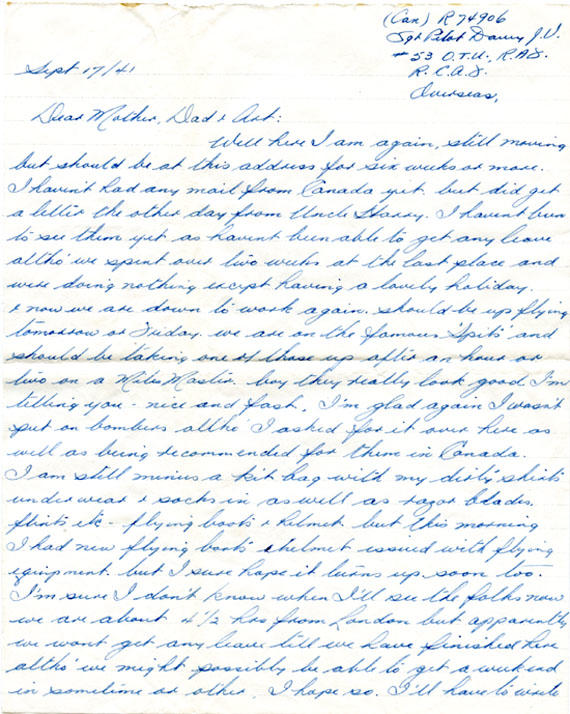 (Can) R74906
Sgt Pilot Davey J.V.
#53 O.T.U., R.A.F.
R.C.A.F.
Overseas,
Sept 17/41
Dear Mother, Dad & Art:
Well here I am again, still moving
but should be at this address for six weeks or more.
I havent had any mail from Canada yet. but did get
a letter the other day from Uncle Harry. I havent been
to see them yet as havent been able to get any leave
altho' we spent over two weeks at the last place and
were doing nothing except having a lovely holiday.
& now we are down to work again. should be up flying
tomorrow or Friday. we are on the famous "Spits" and
should be taking one of those up after an hour or
two on a Miles Master. boy they really look good I'm
telling you - nice and fast. I'm glad again I wasn't
put on bombers altho' I asked for it over here as
well as being recommended for them in Canada.
I am still minus a kit bag with my dirty shirts
underwear & socks in as well as razor blades.
flints, etc - flying boots & helmet. but this morning
I had new flying boots & helmet issued with flying
equipment. but I sure hope it turns up soon too.
I'm sure I don't know when I'll see the folks now
we are about 4 1/2 hrs from London but apparently
we wont get any leave till we have finished here
altho' we might possibly be able to get a weekend
in sometime or other. I hope so. I'll have to write